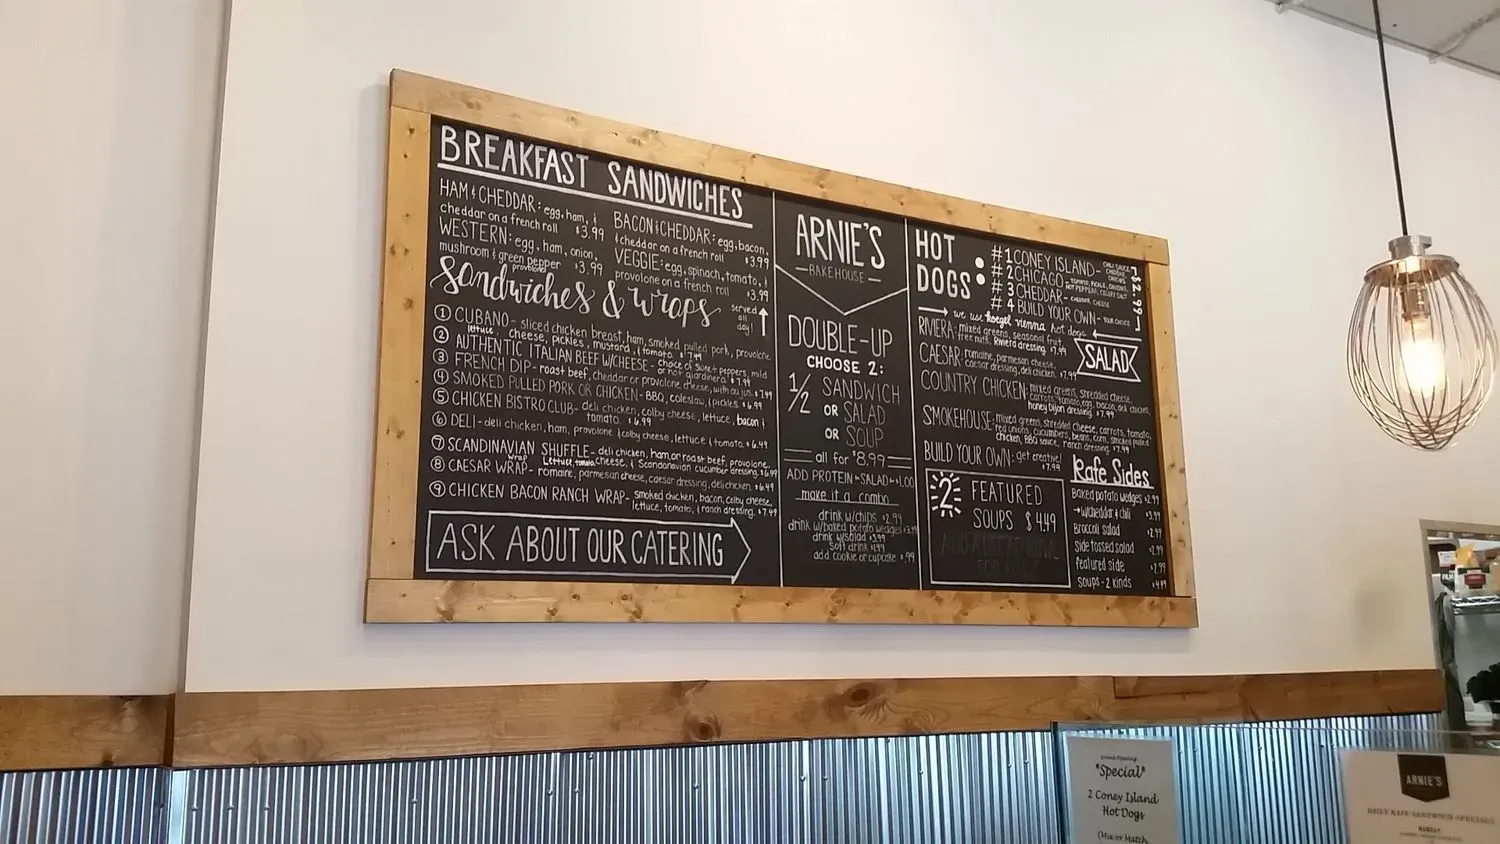 BREAKFAST SANDWICHES
HAM & CHEDDAR: egg, ham, &
cheddar on a french roll $3.99
WESTERN: egg, ham, onion,
mushroom & green pepper $3.99
provolone
BACON & CHEDDAR: egg, bacon,
& cheddar on a french roll $3.99
VEGGIE: egg, spinach, tomato, &
provolone on a french roll $3.99
Sandwiches & wraps
served
all
day!
① CUBANO - sliced chicken breast, ham, smoked pulled pork, provolone
lettuce cheese, pickles, mustard, & tomato. $7.49
② AUTHENTIC ITALIAN BEEF W/CHEESE - choice of sweet peppers, mild
or hot giardinera. $7.99
③ FRENCH DIP - roast beef, cheddar or provolone cheese, with au jus. $7.49
④ SMOKED PULLED PORK OR CHICKEN - BBQ, coleslaw, & pickles. $6.99
⑤ CHICKEN BISTRO CLUB - deli chicken, colby cheese, lettuce, bacon &
tomato. $6.99
⑥ DELI - deli chicken, ham, provolone & colby cheese, lettuce & tomato. $6.49
⑦ SCANDINAVIAN SHUFFLE - deli chicken, ham, or roast beef, provolone
wrap Lettuce, tomato, cheese, & Scandanavian cucumber dressing. $6.99
⑧ CAESAR WRAP - romaine, parmesan cheese, caesar dressing, deli chicken. $6.49
⑨ CHICKEN BACON RANCH WRAP - smoked chicken, bacon, colby cheese,
lettuce, tomato, & ranch dressing. $7.49
ASK ABOUT OUR CATERING
ARNIE'S
BAKEHOUSE
DOUBLE-UP
CHOOSE 2:
1/2 SANDWICH
OR SALAD
OR SOUP
all for $8.99
ADD PROTEIN SALAD $1.00
make it a combo
drink w/chips $2.99
drink w/baked potato wedges $3.99
drink w/salad $3.99
Soft drink $1.99
add cookie or cupcake $.99
HOT
DOGS:
#1 CONEY ISLAND - CHILI SAUCE,
CHEDDAR,
ONIONS
#2 CHICAGO - TOMATO, PICKLE, ONIONS,
HOT PEPPERS, CELERY SALT
#3 CHEDDAR - CHEDDAR CHEESE
#4 BUILD YOUR OWN - YOUR CHOICE
$2.99
we use koegel vienna hot dogs
SALAD
RIVIERA: mixed greens, seasonal fruit,
tree nuts, Riviera dressing $7.99
CAESAR: romaine, parmesan cheese,
caesar dressing, deli chicken. $7.99
COUNTRY CHICKEN: mixed greens, shredded cheese,
carrots, tomato, egg, bacon, deli chicken,
honey dijon dressing $7.99
SMOKEHOUSE: mixed greens, shredded cheese, carrots, tomato,
red onions, cucumbers, beans, corn, smoked pulled
chicken, BBQ sauce, ranch dressing. $7.99
BUILD YOUR OWN: get creative! $7.99
2 FEATURED
SOUPS $4.49
Kafe Sides
Baked potato wedges $2.99
→ w/cheddar & chili $3.99
Broccoli salad $2.99
Side tossed salad $2.99
featured side $2.99
soups - 2 kinds $4.49
Grand Opening
*Special*
2 Coney Island
Hot Dogs
(Mix or Match
ARNIE'S
DAILY KAFE SANDWICH SPECIALS